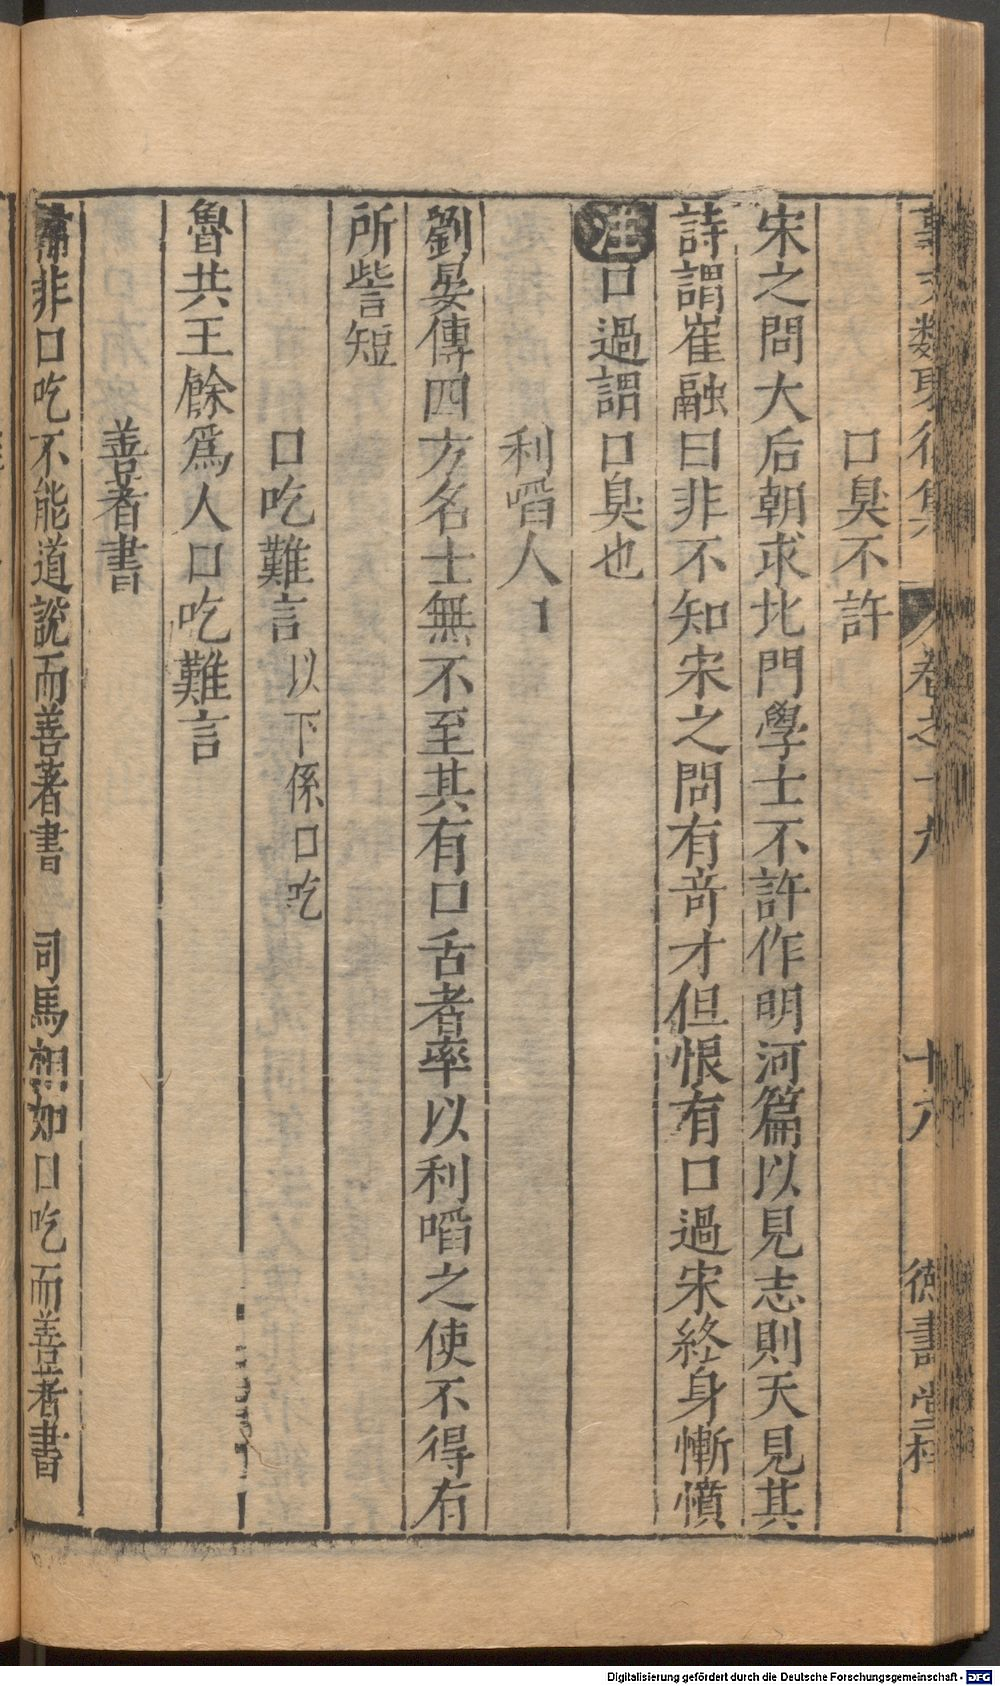 事文類聚後集 卷之十九 十六 德壽堂梓
口臭不許
宋之問大后朝求北門學士不許作明河篇以見志則天見其
詩謂崔融曰非不知宋之問有竒才但恨有口過宋終身慚憤
注口過謂口臭也
利㗖人
劉晏傳四方名士無不至其有口舌者率以利㗖之使不得有
所訾短
口吃難言 以下係口吃
魯共王餘爲人口吃難言
善著書
韓非口吃不能道說而善著書 司馬相如口吃而善著書
Digitalisierung gefördert durch die Deutsche Forschungsgemeinschaft - DFG